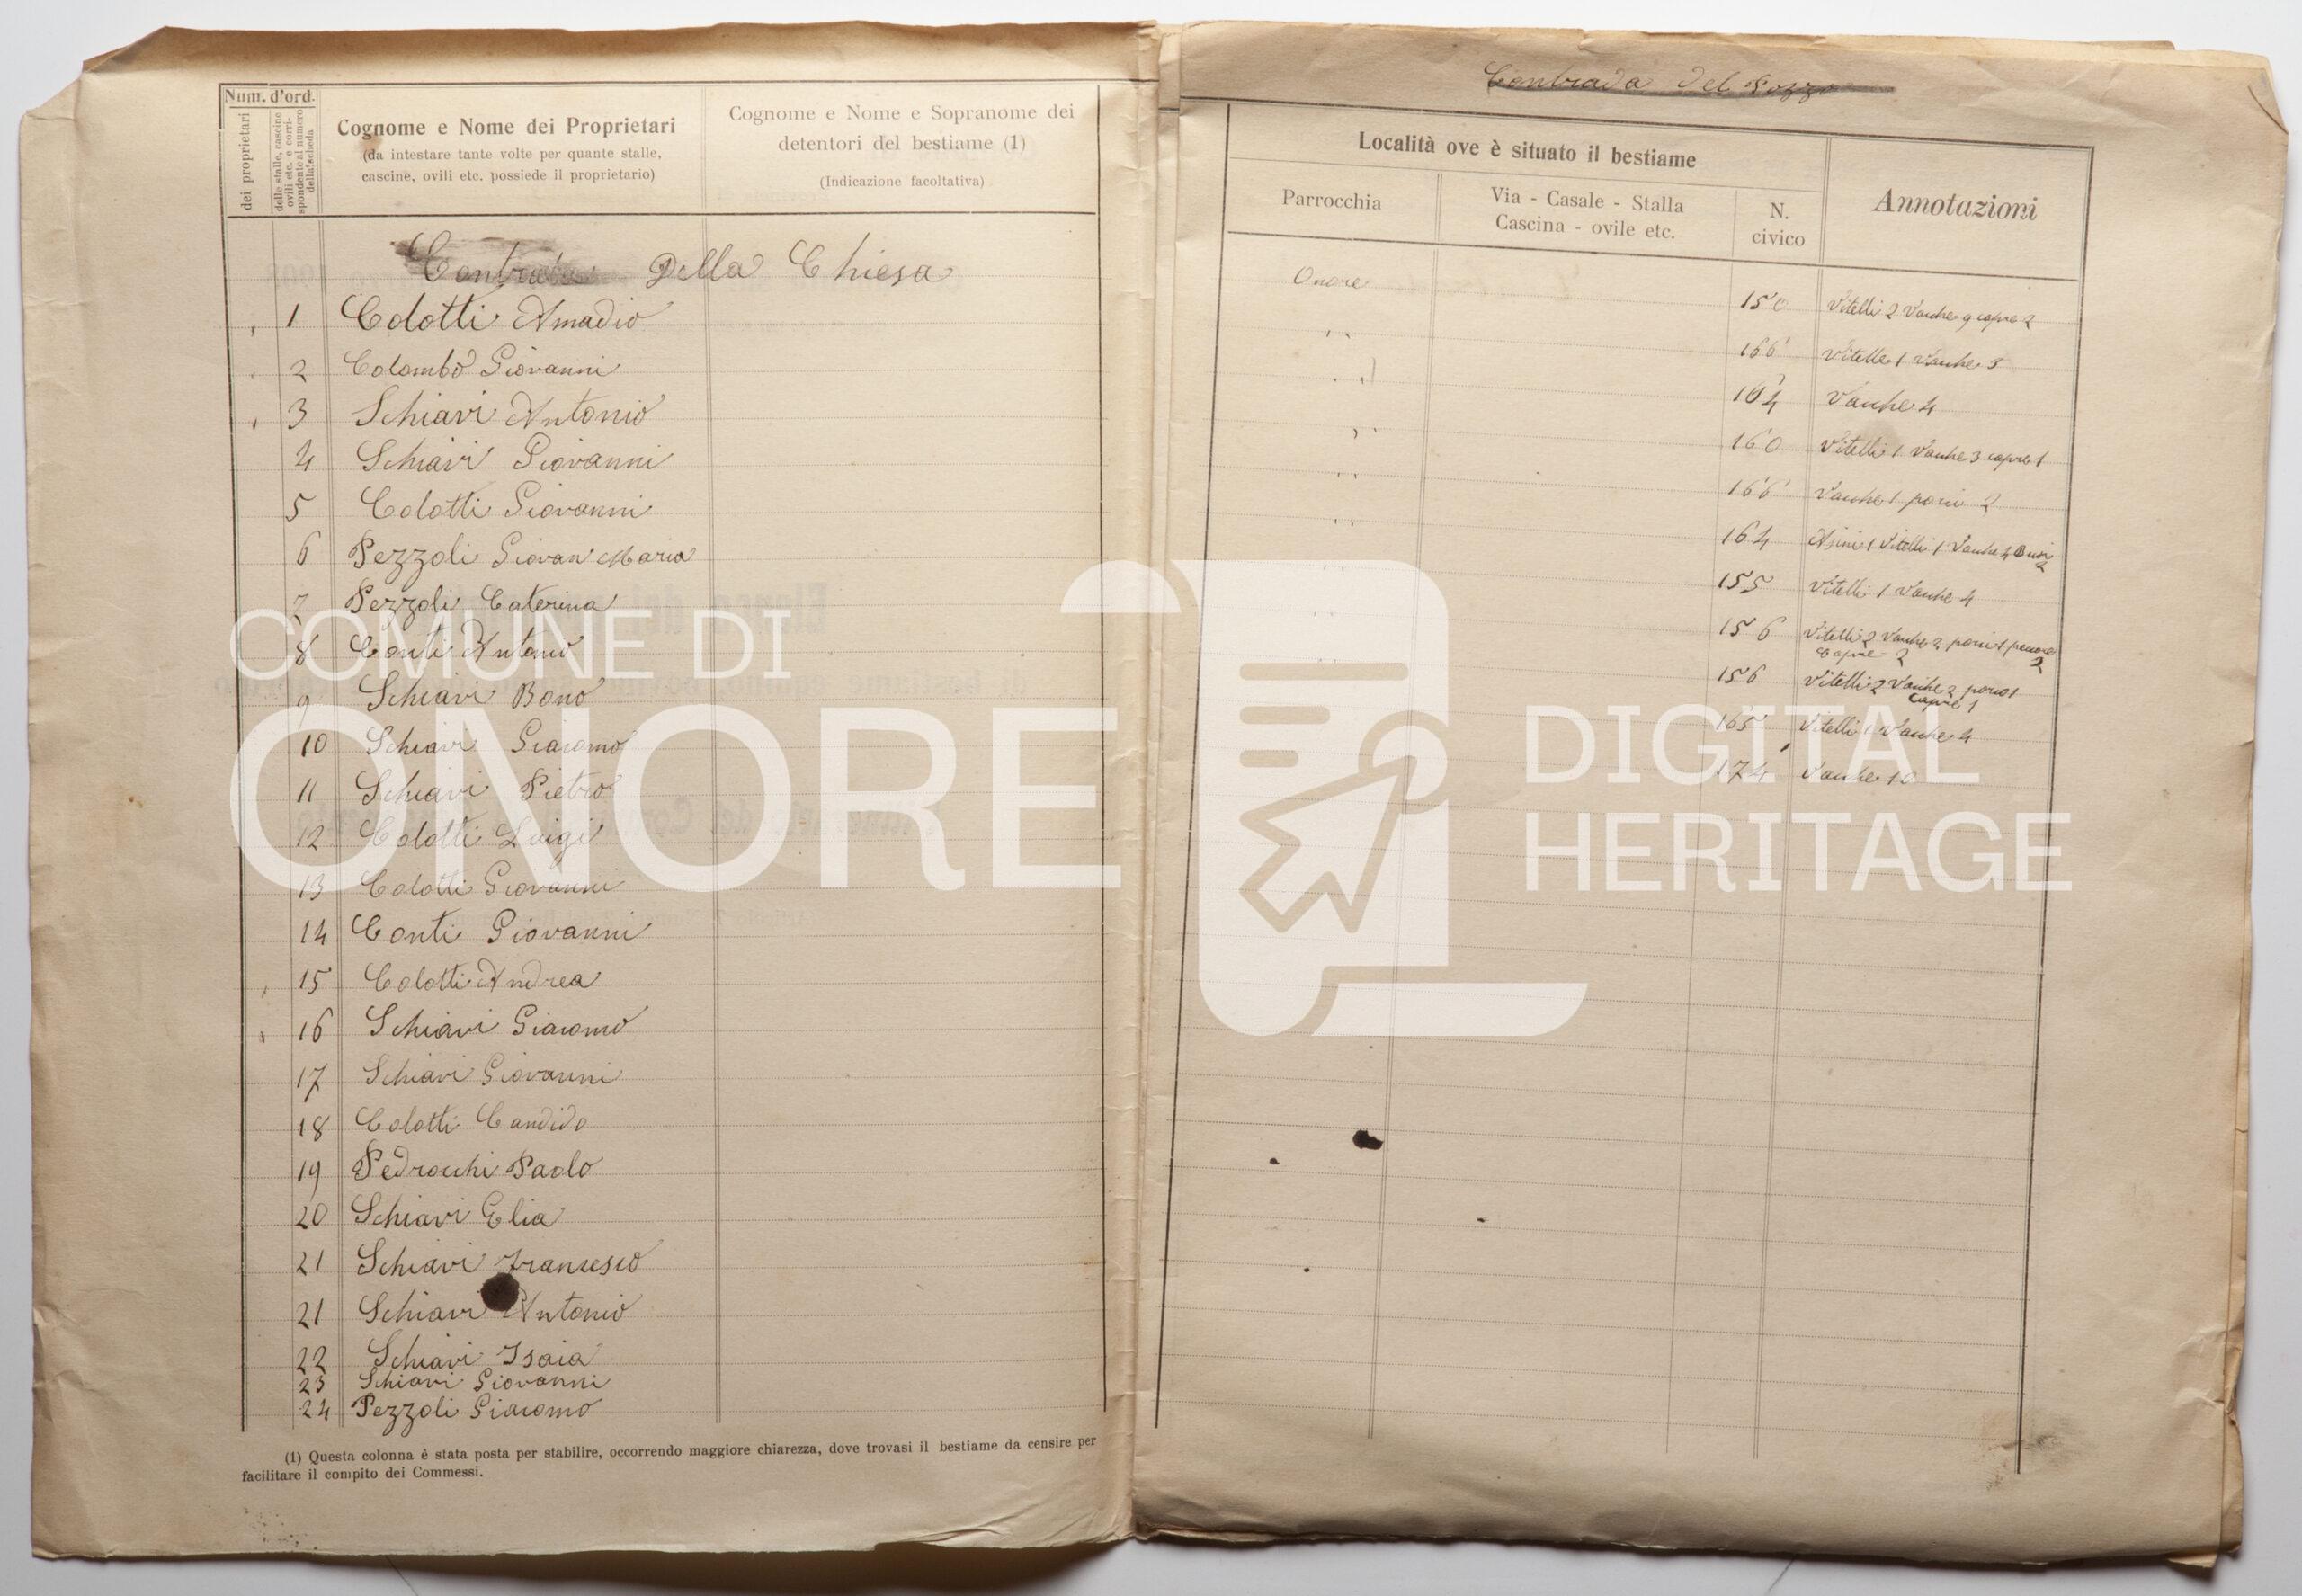 Num. d'ord.
dei proprietari
delle stalle, cascine
ovili etc. e corri-
spondente al numero
della scheda
Cognome e Nome dei Proprietari
(da intestare tante volte per quante stalle,
cascine, ovili etc. possiede il proprietario)
Cognome e Nome e Sopranome dei
detentori del bestiame (1)
(Indicazione facoltativa)
Contrada Della Chiesa
1 Colotti Amadio
2 Colombo Giovanni
3 Schiavi Antonio
4 Schiavi Giovanni
5 Colotti Giovanni
6 Pezzoli Giovan Maria
7 Pezzoli Caterina
8 Conti Antonio
9 Schiavi Bono
10 Schiavi Giacomo
11 Schiavi Pietro
12 Colotti Luigi
13 Colotti Giovanni
14 Conti Giovanni
15 Colotti Andrea
16 Schiavi Giacomo
17 Schiavi Giovanni
18 Colotti Candido
19 Pedrocchi Paolo
20 Schiavi Elia
21 Schiavi Francesco
21 Schiavi Antonio
22 Schiavi Isaia
23 Schiavi Giovanni
24 Pezzoli Giacomo
(1) Questa colonna è stata posta per stabilire, occorrendo maggiore chiarezza, dove trovasi il bestiame da censire per
facilitare il compito dei Commessi.
Contrada del Pozzo
Località ove è situato il bestiame
Parrocchia
Via - Casale - Stalla
Cascina - ovile etc.
N.
civico
Annotazioni
Onore 150 Vitelli 2 Vacche 9 capre 2
166 Vitelle 1 Vacche 3
164 Vacche 4
160 Vitelli 1 Vacche 3 capre 1
166 Vacche 1 porci 2
164 Asini 1 Vitelli 1 Vacche 4
2
155 Vitelli 1 Vacche 4
156 Vitelli 2 Vacche 2 porci 1 pecore
Capre 2 2
156 Vitelli 2 Vacche 2 porco 1
Capre 1
165 Vitelli 1 Vacche 4
174 Vacche 10
COMUNE DI
ONORE
DIGITAL
HERITAGE